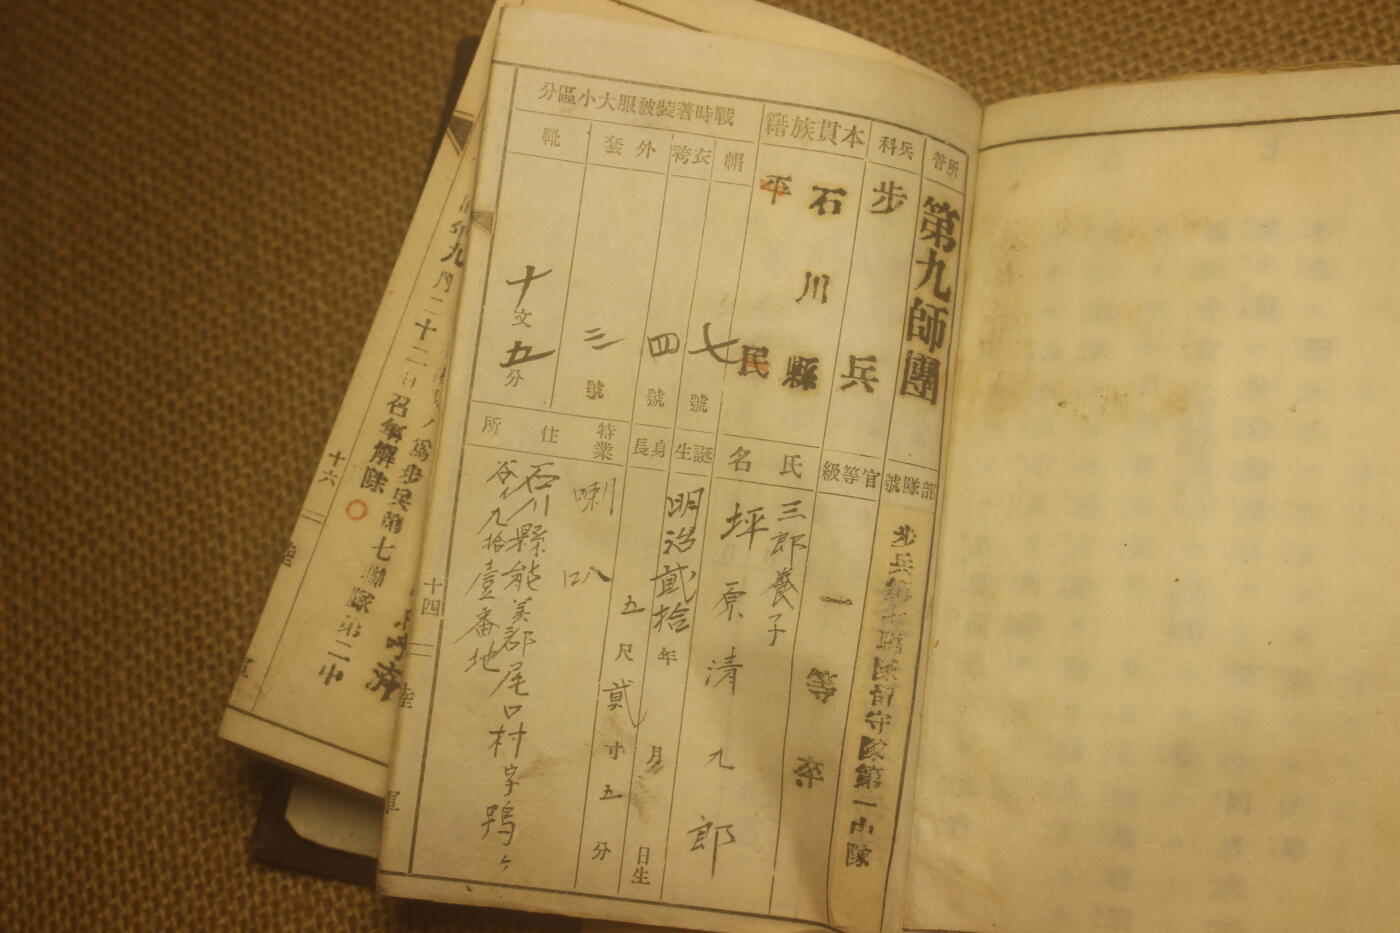 所管
第九師團
部隊號
步兵第七聯隊留守隊第一中隊
兵科
步兵
官等級
一等卒
本貫族籍
石川縣
平民
氏名
三郎養子
坪原清九郎
戰時著裝被服大小區分
帽
七號
衣袴
四號
外套
三號
靴
十文五分
誕生
明治貳拾年 月 日生
身長
五尺貳寸五分
特業
喇叭
住所
石川縣能美郡尾口村字鴇ヶ
谷ノ九拾壹番地
十四
陸軍
ノ爲步兵第七聯隊第二中
年九月二十二日召集解除
十六
陸軍